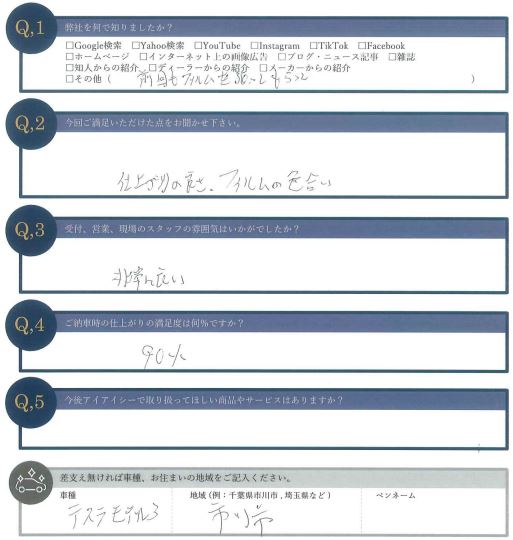 Q,1 弊社を何で知りましたか？
□Google検索 □Yahoo検索 □YouTube □Instagram □TikTok □Facebook
□ホームページ □インターネット上の画像広告 □ブログ・ニュース記事 □雑誌
□知人からの紹介 □ディーラーからの紹介 □メーカーからの紹介
□その他（ 前回もフィルムを貼ってもらって ）
Q,2 今回ご満足いただけた点をお聞かせ下さい。
仕上がりの良さ、フィルムの色合い
Q,3 受付、営業、現場のスタッフの雰囲気はいかがでしたか？
非常に良い
Q,4 ご納車時の仕上がりの満足度は何%ですか？
90%
Q,5 今後アイアイシーで取り扱ってほしい商品やサービスはありますか？
差支え無ければ車種、お住まいの地域をご記入ください。
車種 地域（例：千葉県市川市，埼玉県など） ペンネーム
テスラモデル3 市川市